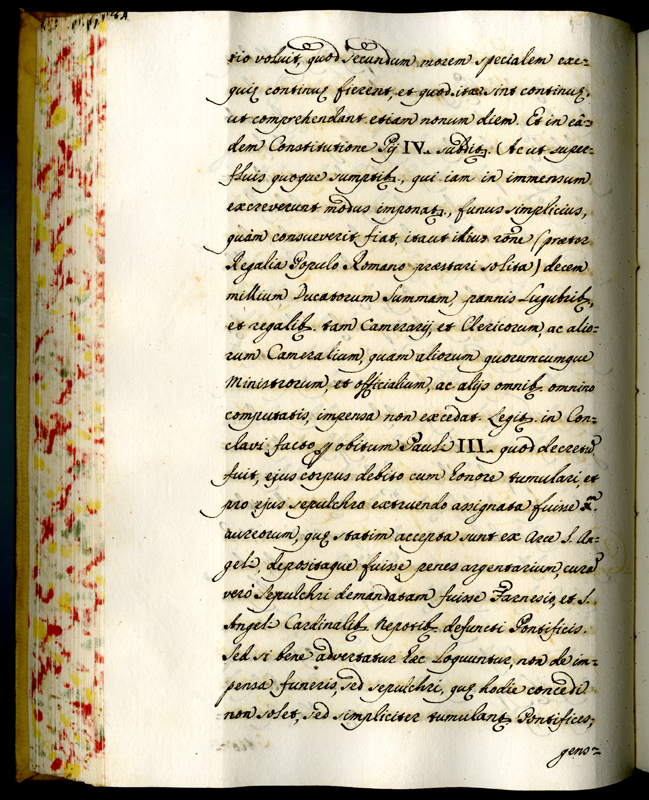 tio voluit, quod secundum morem specialem exe-
quię continuę fierent, et quod itae sint continuę,
ut comprehendant etiam nonum diem. Et in eâ-
dem Constitutione Pij IV. subdiꝫ. (Ac ut super-
fluis quoque sumptibꝫ., qui iam in immensum
excreverunt modus imponatꝫ., funus simplicius,
quàm consueverit fiat, itaut illius rõne (præter
Regalia Populo Romano præstari solita) decem
millium Ducatorum Summam, pannis Lugubribꝫ,
et regalibꝫ. tam Camerarij, et Clericorum, ac alio-
rum Cameralium, quam aliorum quorumcumque
Ministrorum, et officialium, ac alijs omnibꝫ. omnino
computatis, impensa non excedat. Legitꝫ. in Con-
clavi facto ꝑ obitum Pauli III. quod decretũ
fuit, ejus corpus debito cum honore tumulari, et
pro ejus sepulchro extruendo assignata fuisse Xm.
aureorum, quę statim accepta sunt ex Arce S. An-
geli, depositaque fuisse penes argentarium, curã
verò Sepulchri demandatam fuisse Farnesio, et S.
Angeli Cardinalibꝫ Nepotibꝫ defuncti Pontificis.
Sed si bene advertatur hæc Loquuntur, non de im-
pensa funeris, sed sepulchri, quę hodie concedi
non solet, sed simpliciter tumulantꝫ Pontifices;
gens-